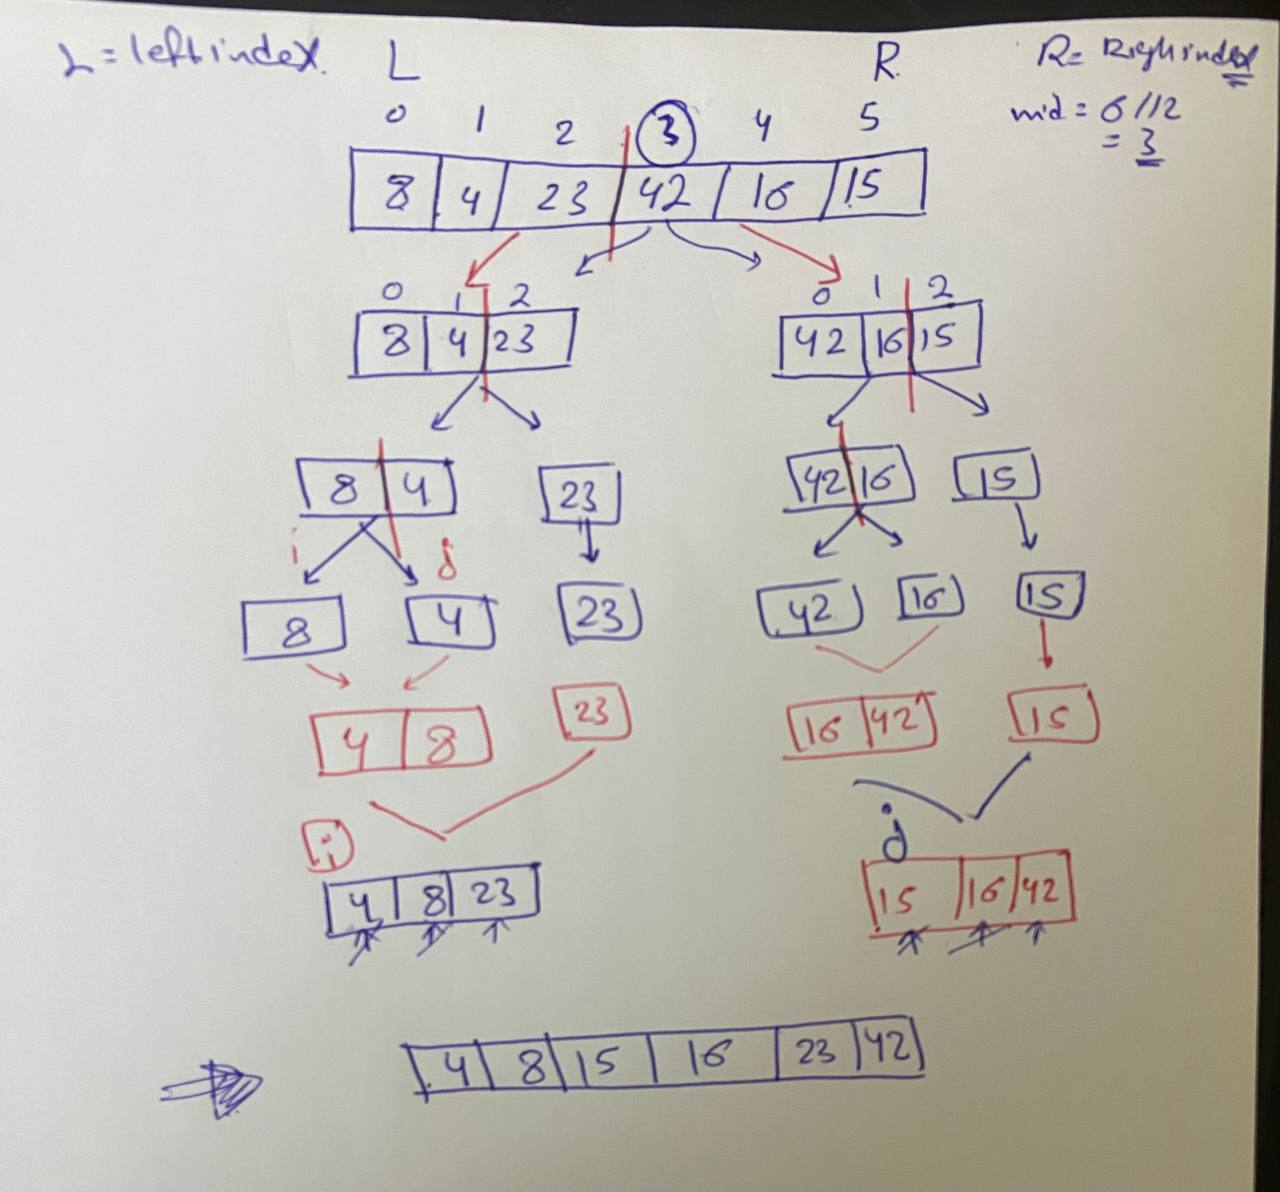 L = left index. L R. R= Righ index
0 1 2 3 4 5 mid = 6//2
= 3
8 4 23 42 16 15
0 1 2 0 1 2
8 4 23 42 16 15
8 4 23 42 16 15
i j
8 4 23 42 16 15
4 8 23 16 42 15
i j
4 8 23 15 16 42
4 8 15 16 23 42